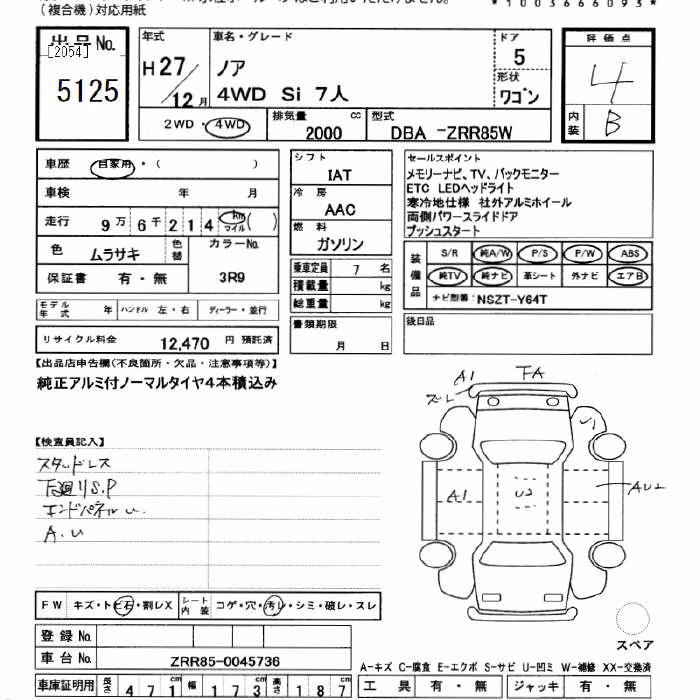 (複合機)対応用紙
*1003666093*
出品No.
[2054]
5125
年式
H27/12月
車名・グレード
ノア
4WD Si 7人
ドア
5
形状
ワゴン
評価点
4
内装
B
2WD・4WD
排気量
2000 cc
型式
DBA -ZRR85W
車歴 自家用・( )
車検 年 月
走行 9万6千214 km マイル ( )
色 ムラサキ 色替 カラーNo.
3R9
保証書 有・無
モデル年式 年 ハンドル 左・右 ディーラー・並行
リサイクル料金 12,470 円 預託済
シフト
IAT
冷房
AAC
燃料
ガソリン
乗車定員 7 名
積載量 kg
総重量 kg
書類期限
月 日
セールスポイント
メモリーナビ、TV、バックモニター
ETC LEDヘッドライト
寒冷地仕様 社外アルミホイール
両側パワースライドドア
プッシュスタート
装備品
S/R 純A/W P/S P/W ABS
純TV 純ナビ 革シート 外ナビ エアB
ナビ型番: NSZT-Y64T
後日品
【出品店申告欄(不良箇所・欠品・注意事項等)】
純正アルミ付ノーマルタイヤ4本積込み
【検査員記入】
スタッドレス
下廻りS.P
エンドパネルU.
A.U
A1
FA
ズレ
A1
U2
AU2
FW キズ・トビ石・割レX シート内装 コゲ・穴・汚レ・シミ・破レ・スレ
登録No.
車台No. ZRR85-0045736
スペア
A-キズ C-腐食 E-エクボ S-サビ U-凹ミ W-補修 XX-交換済
車庫証明用 長さ 471 cm 幅 173 cm 高さ 187 cm
工具 有・無 ジャッキ 有・無